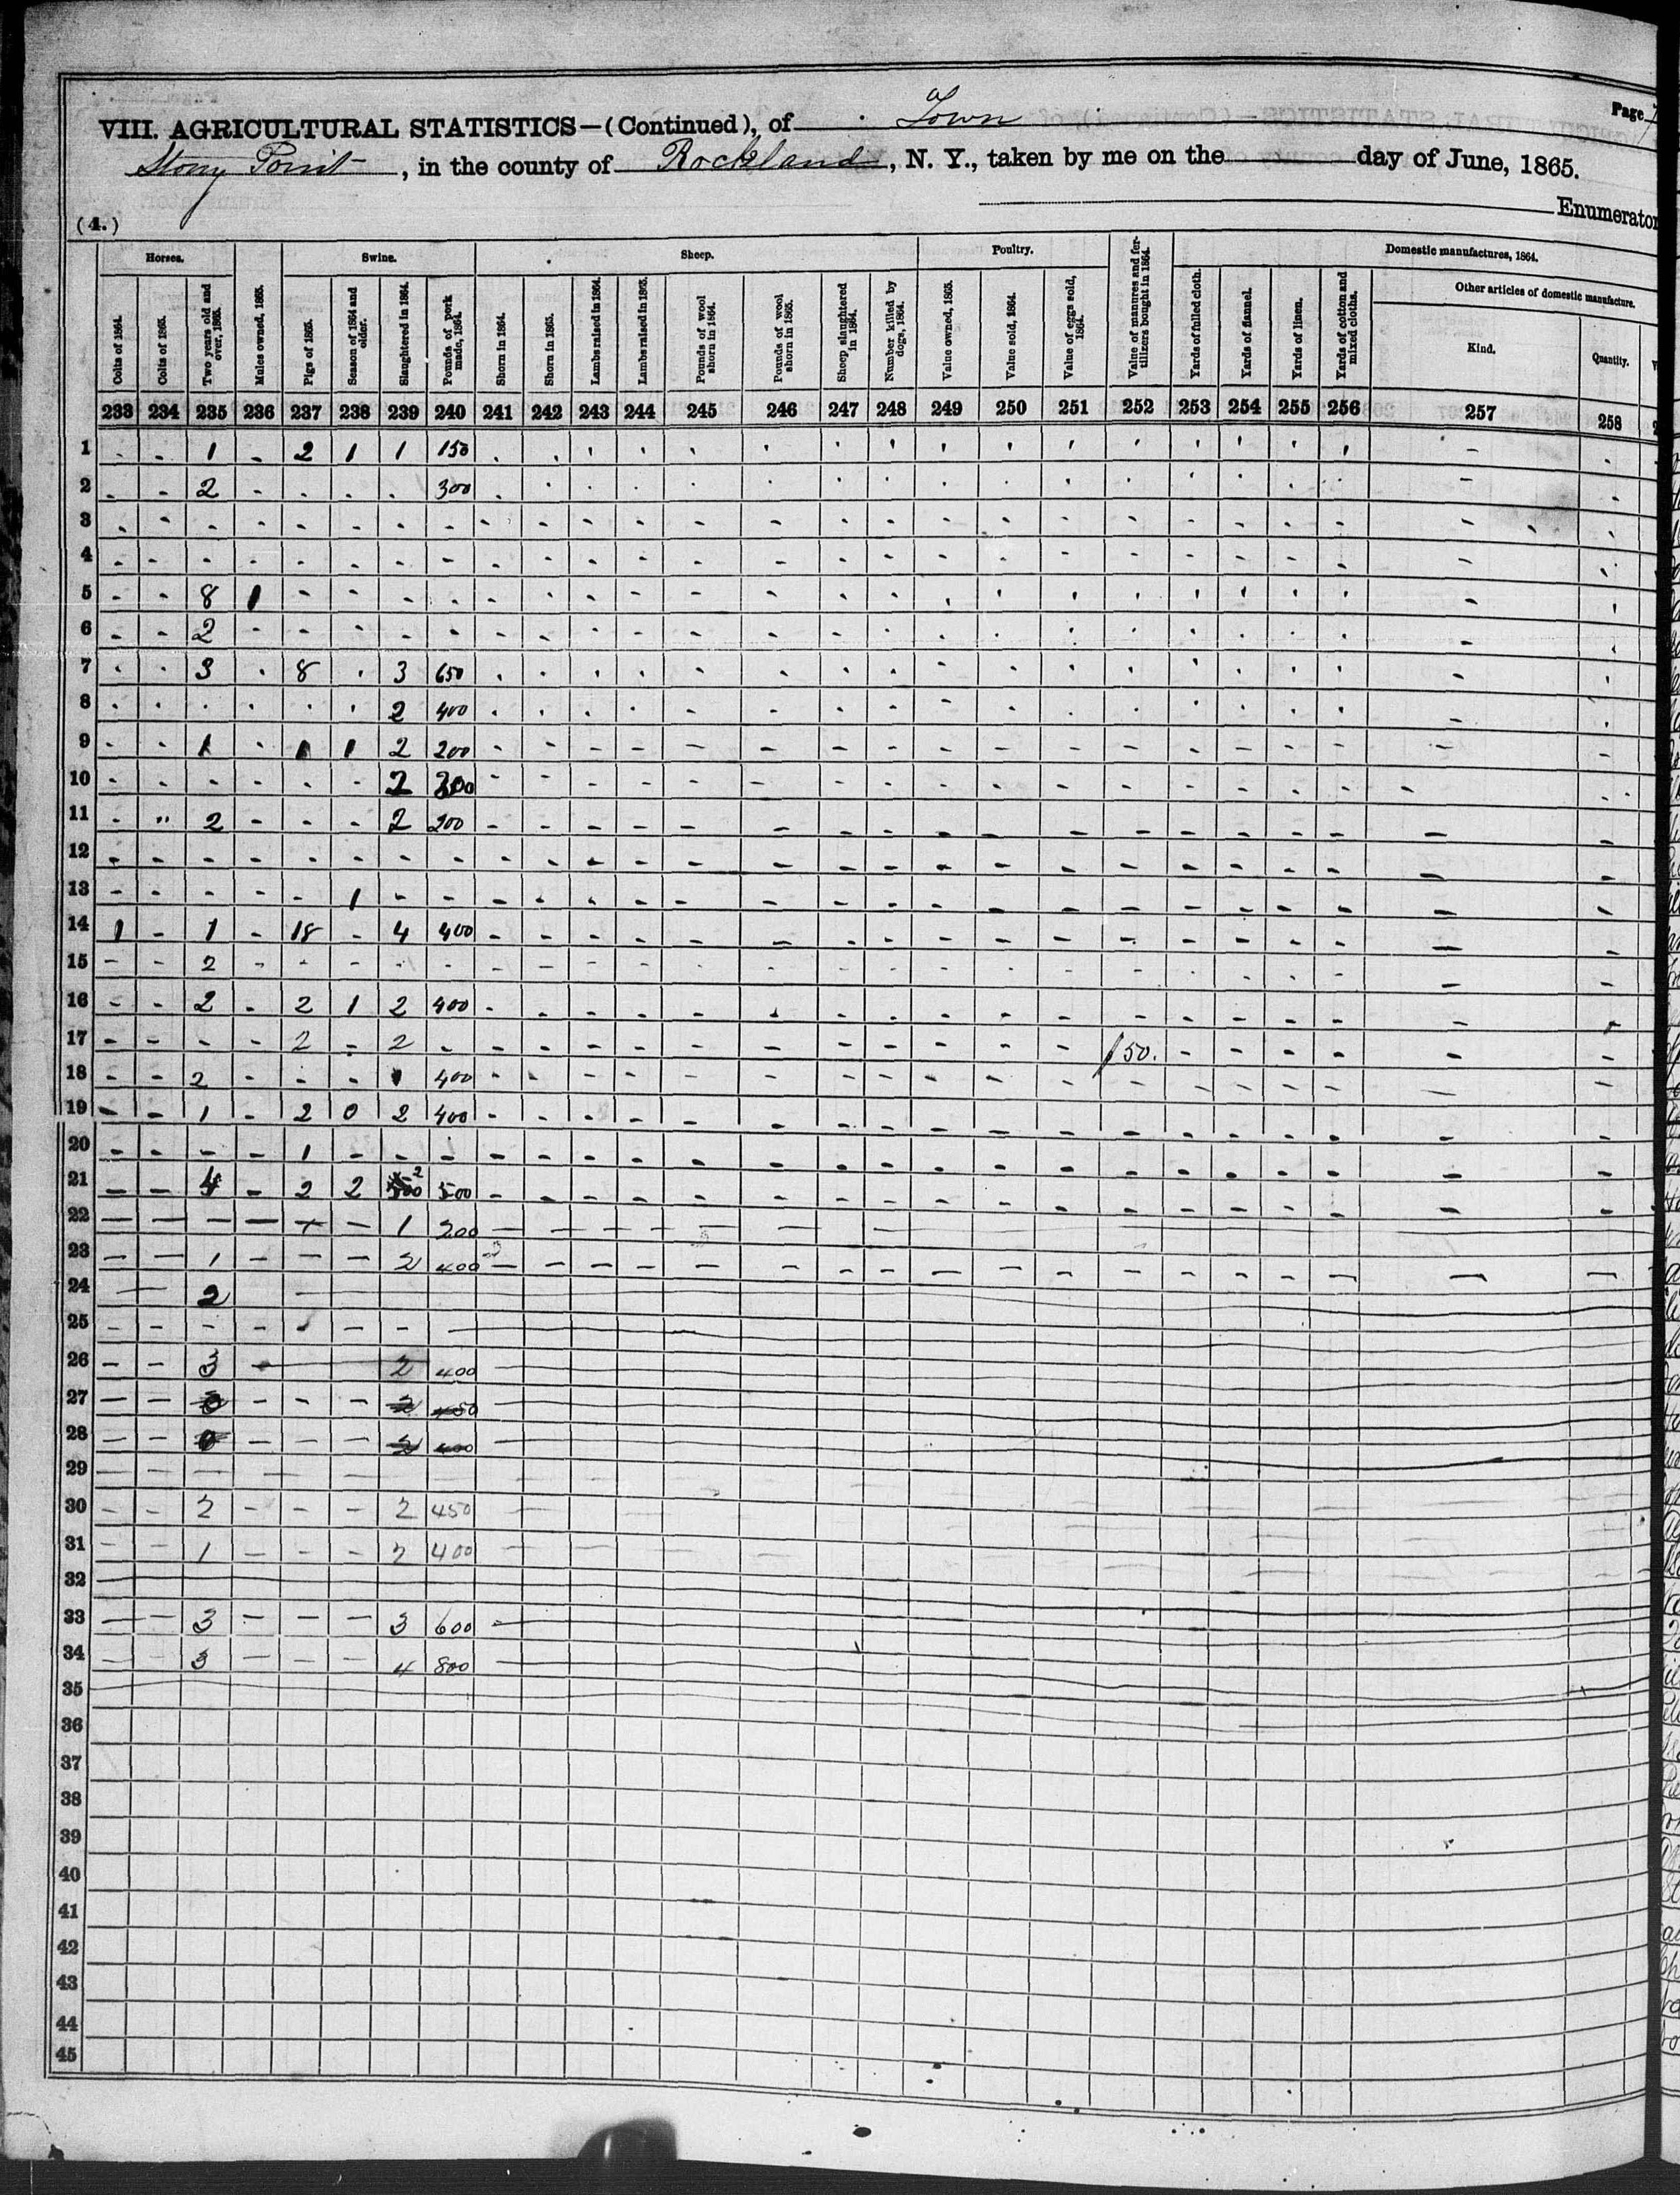 Page
VIII. AGRICULTURAL STATISTICS—(Continued), of Town
Stony Point, in the county of Rockland, N. Y., taken by me on the day of June, 1865.
Enumerator
(4.)
Horses. Swine. Sheep. Poultry. Domestic manufactures, 1864.
Other articles of domestic manufacture.
Colts of 1864. Colts of 1865. Two years old and over, 1865. Mules owned, 1865. Pigs of 1865. Season of 1864 and older. Slaughtered in 1864. Pounds of pork made, 1864. Shorn in 1864. Shorn in 1865. Lambs raised in 1864. Lambs raised in 1865. Pounds of wool shorn in 1864. Pounds of wool shorn in 1865. Sheep slaughtered in 1864. Number killed by dogs, 1864. Value owned, 1865. Value sold, 1864. Value of eggs sold, 1864. Value of manures and fertilizers bought in 1864. Yards of fulled cloth. Yards of flannel. Yards of linen. Yards of cotton and mixed cloths. Kind. Quantity.
233 234 235 236 237 238 239 240 241 242 243 244 245 246 247 248 249 250 251 252 253 254 255 256 257 258
1 - - 1 - 2 1 1 150
2 - - 2 - - - - 300
3
4
5 - - 8 1
6 - - 2
7 - - 3 - 8 - 3 650
8 - - - - - - 2 400
9 - - 1 - 1 1 2 200
10 - - - - - - 2
11 - " 2 - - - 2 200
12
13 - - - - - 1
14 1 - 1 - 18 - 4 400
15 - - 2
16 - - 2 - 2 1 2 400
17 - - - - 2 - 2 - 50.
18 - - 2 - - - 1 400
19 - - 1 - 2 0 2 400
20 - - - - 1
21 - - 4 - 2 2 2 500
22 - - - - + - 1 200
23 - - 1 - - - 2 400
24 - - 2
25
26 - - 3 - 2 400
27
28
29
30 - - 2 - - - 2 450
31 - - 1 - - - 2 400
32
33 - - 3 - - - 3 600
34 - - 3 - - - 4 800
35
36
37
38
39
40
41
42
43
44
45